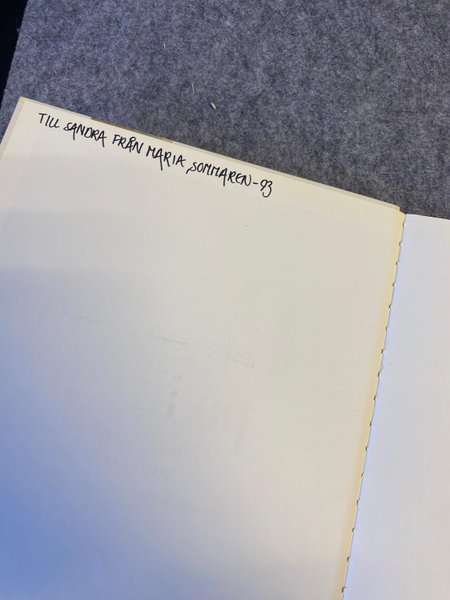 TILL SANDRA FRÅN MARIA SOMMAREN-93